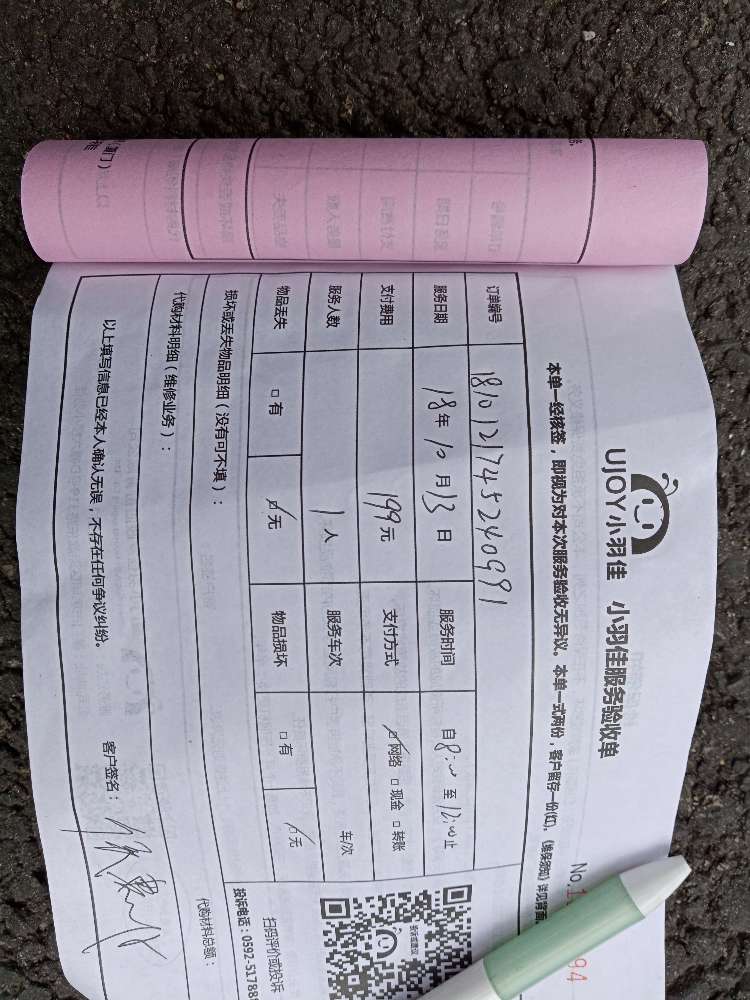 UJOY小羽佳 小羽佳服务验收单
No.1
94
本单一经核签，即视为对本次服务验收无异议。本单一式两份，客户留存一份(红)，《维保须知》详见背面
订单编号 181012174524099 1
服务日期 18年10月13日 服务时间 自8:00至12:00止
支付费用 199元 支付方式 网络 □现金 □转账
服务人数 1人 服务车次 车/次
物品丢失 □有 无 物品损坏 □有 无
损坏或丢失物品明细（没有可不填）：
代购材料明细（维修业务）：
代购材料总额：
以上填写信息已经本人确认无误，不存在任何争议纠纷。
客户签名：
投诉或建议
扫码评价或投诉
投诉电话：0592-51788